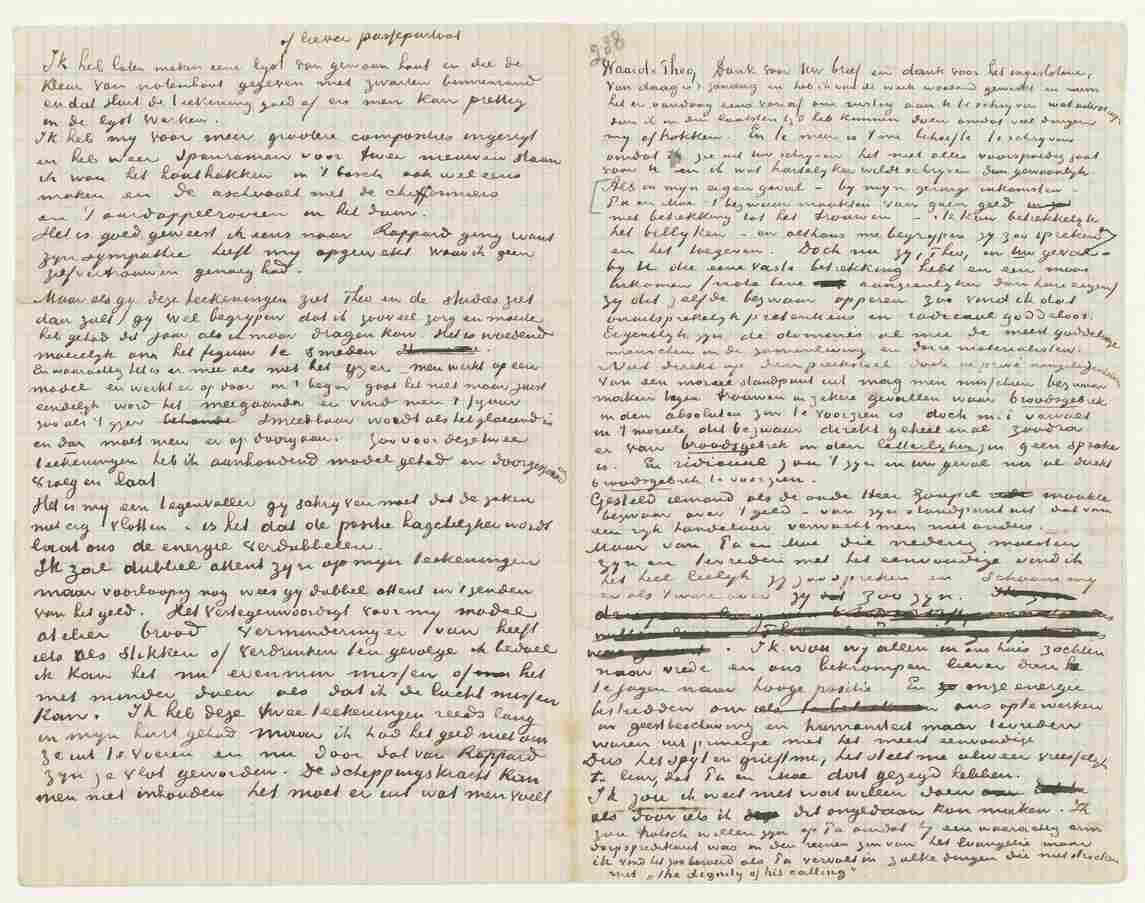 of liever passepartout
Ik heb laten maken eene lyst van gewoon hout en die de
kleur van notenhout gegeven met zwarten binnenrand
en dat sluit de teekening goed af en men kan prettig
in de lyst werken.
Ik heb my voor meer grootere composities ingerigt
en heb weer spanramen voor twee nieuwen staan
ik wou het houthakken in 't bosch ook wel eens
maken en de aschvaalt met de chiffonniers
en 't aardappelrooien in het duin.
Het is goed geweest ik eens naar Rappard ging want
zyn sympathie heeft my opgewekt waar ik geen
zelfvertrouwen genoeg had.
Maar als gy deze teekeningen ziet Theo en de studies ziet
dan zult gy wel begrypen dat ik zooveel zorg en moeite
heb gehad dit jaar als ik maar dragen kon. Het is woedend
moeielyk om het figuur te smeden
En waarachtig het is er mee als met het yzer – men werkt op een
model en werkt er op voor in 't begin gaat het niet maar juist
eindelyk word het meegaander en vind men 't figuur
zoo als 't yzer smeedbaar wordt als het gloeiend is
en dan moet men er op doorgaan. Zoo voor deze twee
teekeningen heb ik aanhoudend model gehad en doorgezwoegd
vroeg en laat
Het is my een tegenvaller gy schryven moet dat de zaken
niet erg vlotten – is het dat de positie hagchelyker wordt
laat ons de energie verdubbelen.
Ik zal dubbel attent zyn op myn teekeningen
maar voorloopig nog wees gy dubbel attent in 't zenden
van het geld. Het vertegenwoordigt voor my model
atelier brood vermindering er van heeft
iets als stikken of verdrinken ten gevolge ik bedoel
ik kan het nu evenmin missen of het
met minder doen als dat ik de lucht missen
kan. Ik heb deze twee teekeningen reeds lang
in myn hart gehad maar ik had het geld niet om
ze uit te voeren en nu door dat van Rappard
zyn ze vlot geworden. De scheppingskracht kan
men niet inhouden het moet er uit wat men voelt
238
Waarde Theo, Dank voor Uw brief en dank voor het ingeslotene,
Van daag is zondag en heb ik van de week woedend gewerkt en neem
het er vandaag eens van af om rustig aan U te schryven wat
dan ik in den laatsten tyd heb kunnen doen omdat veel dingen
my aftrokken. En te meer is 't me behoefte te schryven
omdat ik zie uit Uw schryven het niet alles voorspoedig gaat
voor U en ik wat hartelyker wilde schryven dan gewoonlyk.
Als in myn eigen geval – by myn geringe inkomsten –
Pa en Moe 't bezwaar maakten van geen geld
met betrekking tot het trouwen – Ik kan betrekkelyk
het billyken – en althans me begrypen zy zoo spreken
en het toegeven. Doch nu zy, Theo, in Uw geval –
by U die eene vaste betrekking hebt en een mooi
inkomen (nota bene aanzienlyker dan hare eigen)
zy dat zelfde bezwaar opperen zoo vind ik dat
onuitsprekelyk pretentieus en radicaal goddeloos.
Eigenlyk zyn de dominés al mee de meest goddelooze
menschen in de samenleving en dorre materialisten.
Niet direkt op den preekstoel doch in privé aangelegenheden
Van een moreel standpunt uit mag men misschien bezwaar
maken tegen trouwen in zekere gevallen waar broodsgebrek
in den absoluten zin te voorzien is doch m.i vervalt
in 't moreele dat bezwaar direkt geheel en al zoodra
er van broodsgebrek in den letterlyken zin geen sprake
is. En ridicuul zou 't zyn in uw geval nu al direkt
broodsgebrek te voorzien.
Gesteld iemand als de oude Heer Goupil maakte
bezwaar over 't geld – van zyn standpunt uit dat van
een ryk handelaar verwacht men niet anders.
Maar van Pa en Moe die nederig moesten
zyn en tevreden met het eenvoudige vind ik
het heel leelyk zy zoo spreken en schaam my
er als 't ware over zy zoo zyn.
Ik wou wy allen in ons huis zochten
naar vrede en ons bekrompen liever dan
te jagen naar hooge positie En onze energie
besteedden om ons op te werken
in geestbeschaving en humaniteit maar tevreden
waren uit principe met het meest eenvoudige
Dus het spyt en grieft me, het stelt me alweer vreeselyk
te leur, dat Pa en Moe dat gezegd hebben.
Ik zou ik weet niet wat willen doen
als door iets ik dit ongedaan kon maken. Ik
zou trotsch willen zyn op Pa omdat hy een waarachtig arm
dorpspredikant was in den reinen zin van het Evangelie maar
ik vind het zoo beroerd als Pa vervalt in zulke dingen die niet strooken
met „the dignity of his calling”